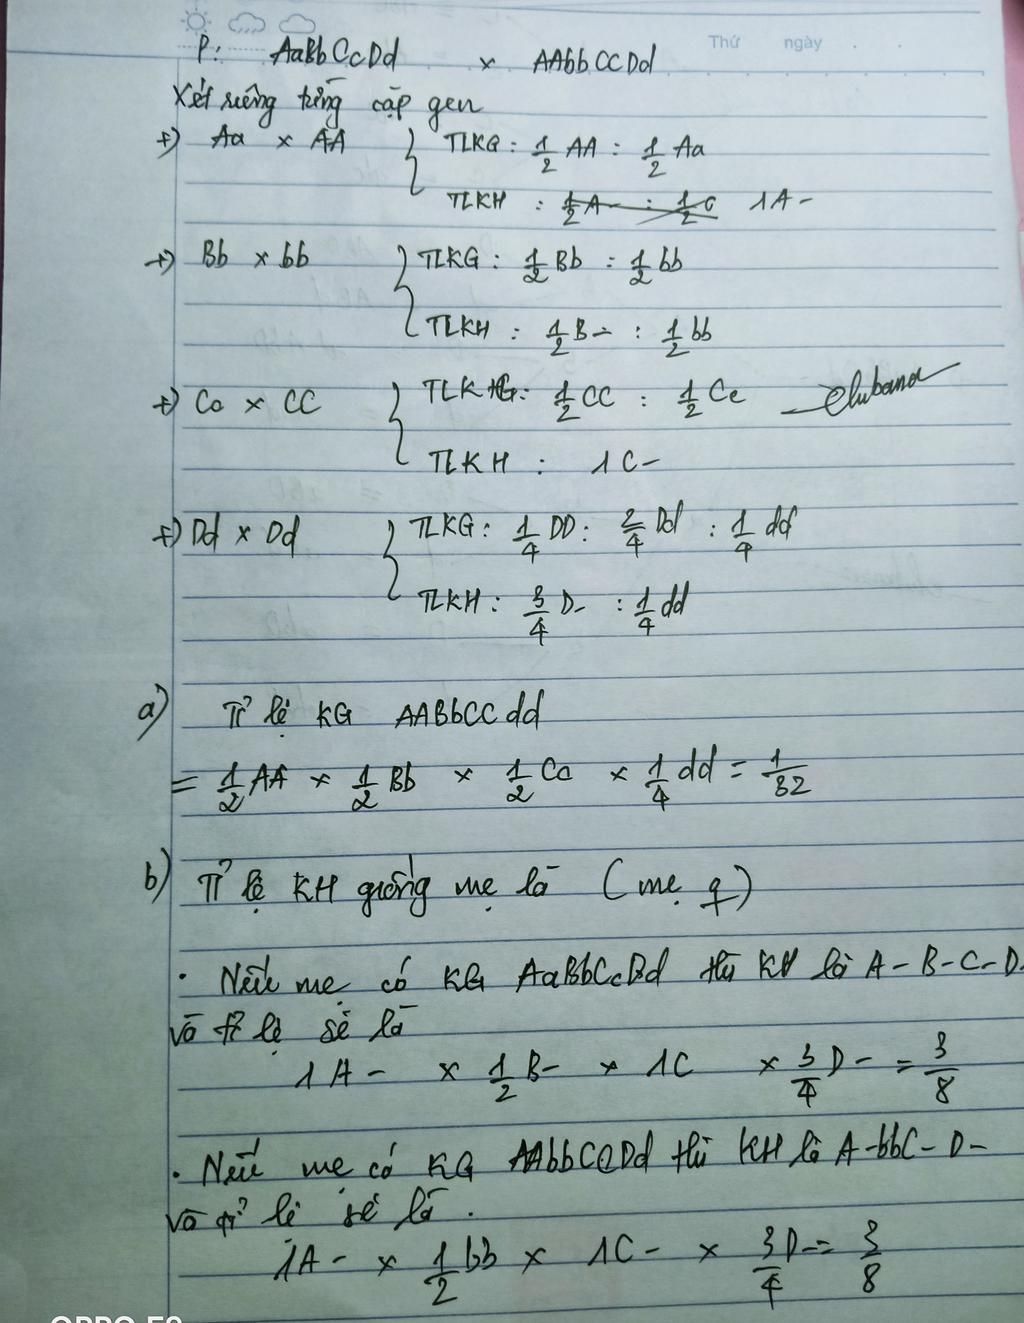 Thứ ngày
P: AaBbCcDd x AAbbCCDd
Xét riêng từng cặp gen
+) Aa x AA { TLKG: 1/2 AA : 1/2 Aa
TLKH : 1/2 A- : 1/2 1A-
+) Bb x bb { TLKG: 1/2 Bb : 1/2 bb
TLKH : 1/2 B- : 1/2 bb
+) Cc x CC { TLKG: 1/2 CC : 1/2 Cc
TLKH : 1C-
+) Dd x Dd { TLKG: 1/4 DD : 2/4 Dd : 1/4 dd
TLKH : 3/4 D- : 1/4 dd
a) Tỉ lệ KG AABbCCdd
= 1/2 AA x 1/2 Bb x 1/2 Cc x 1/4 dd = 1/32
b) Tỉ lệ KH giống mẹ là (mẹ ♀)
• Nếu mẹ có KG AaBbCcDd thì KH là A-B-C-D-
và tỉ lệ sẽ là
1A- x 1/2 B- x 1C x 3/4 D- = 3/8
• Nếu mẹ có KG AAbbCCDd thì KH là A-bbC-D-
và tỉ lệ sẽ là.
1A- x 1/2 bb x 1C- x 3/4 D- = 3/8